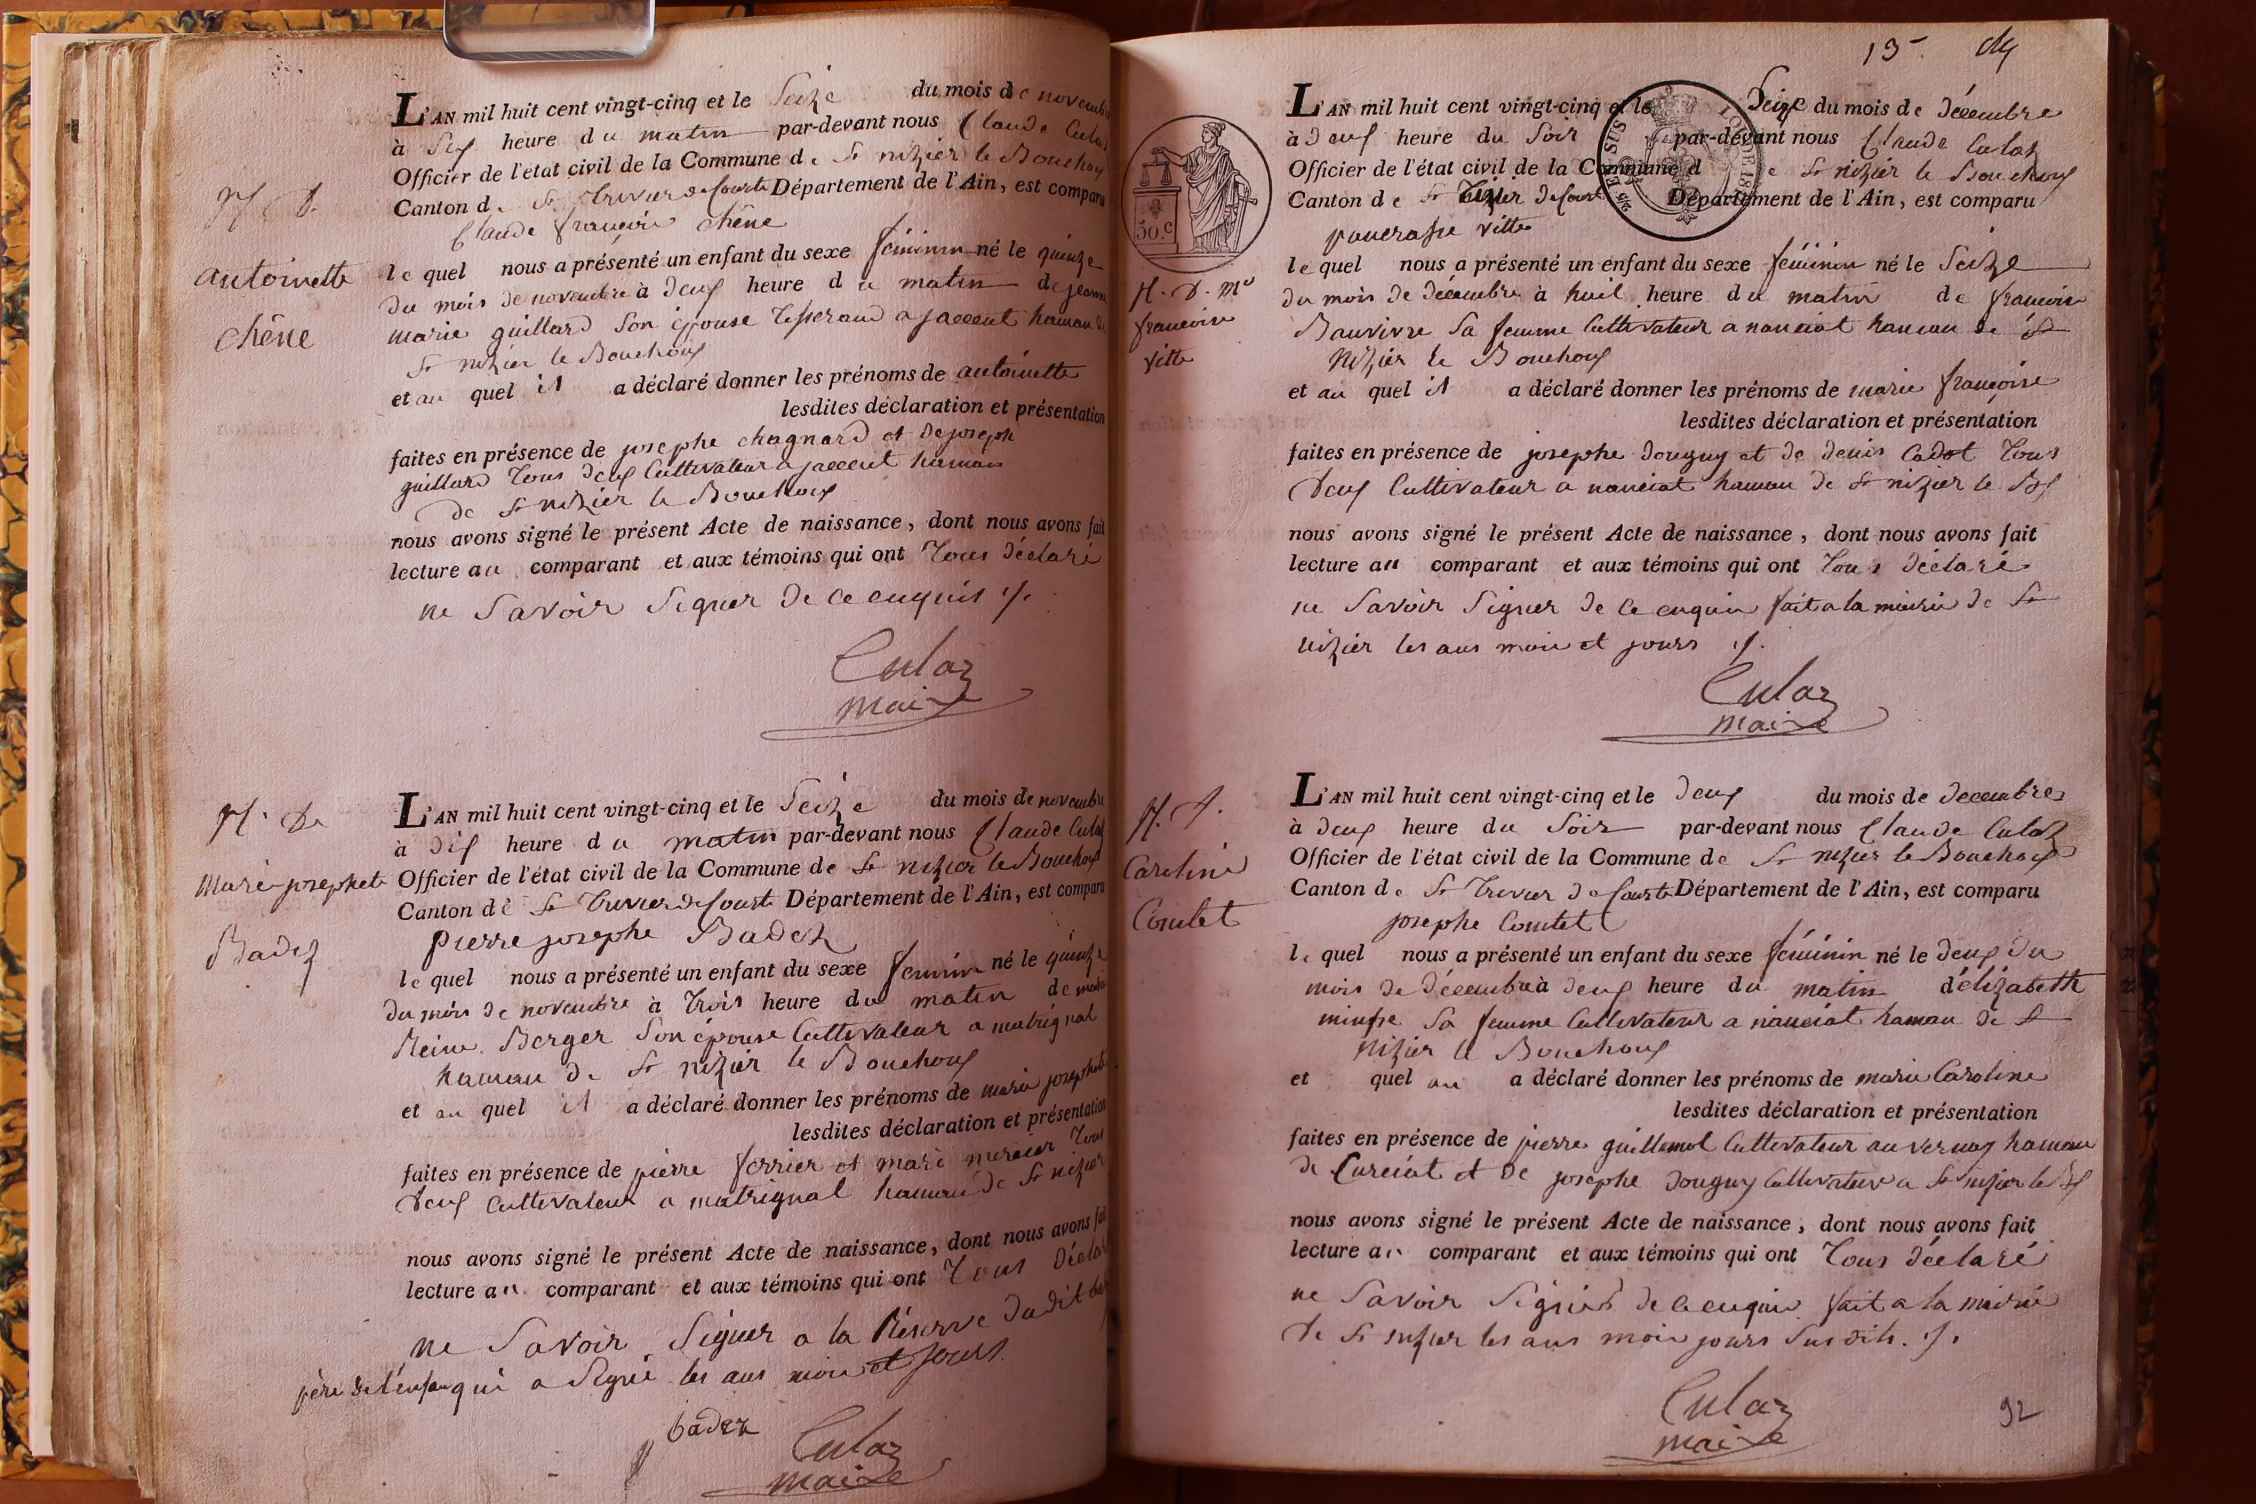 N D
antoinette
chêne
L'AN mil huit cent vingt-cinq et le Seize du mois de novembre
à Six heure du matin par-devant nous Claude Culaz
Officier de l'état civil de la Commune de St nizier le Bouchoux
Canton de St trivier de Courte Département de l'Ain, est comparu
Claude françois chêne
le quel nous a présenté un enfant du sexe féminin né le quinze
du mois de novembre à deux heure du matin de jeanne
marie guillard Son épouse tisserand a jaccent hamau de
St nizier le Bouchoux
et au quel il a déclaré donner les prénoms de antoinette
lesdites déclaration et présentation
faites en présence de josephe chagnard et de joseph
guillard tous deux Cultivateur a jaccent hamau
de St nizier le Bouchoux
nous avons signé le présent Acte de naissance, dont nous avons fait
lecture au comparant et aux témoins qui ont tous déclaré
ne Savoir Signer de ce enquis ./.
Culaz
maire
N. De
Marie josephete
Badez
L'AN mil huit cent vingt-cinq et le Seize du mois de novembre
à dix heure du matin par-devant nous Claude Culaz
Officier de l'état civil de la Commune de St nizier le Bouchoux
Canton de St trivier de Courte Département de l'Ain, est comparu
pierre josephe Badez
le quel nous a présenté un enfant du sexe feminin né le quinze
du mois de novembre à trois heure du matin de marie
Reine Berger Son épouse Cultivateur a matrignat
hamau de St nizier le Bouchoux
et au quel il a déclaré donner les prénoms de marie josephete
lesdites déclaration et présentation
faites en présence de pierre ferrier et marie mercier tous
deux Cultivateur a matrignat hamau de St nizier
nous avons signé le présent Acte de naissance, dont nous avons fait
lecture au comparant et aux témoins qui ont tous déclaré
ne Savoir Signer a la Réserve dudit
père de l'enfan qui a Signé les ans moi et jours
badez
Culaz
maire
13
30.C
N. D. Me
francoise
vitte
L'AN mil huit cent vingt-cinq et le Seize du mois de décembre
à deux heure du Soir par-devant nous Claude Culaz
Officier de l'état civil de la Commune de St nizier le Bouchoux
Canton de St trivier de Courte Département de l'Ain, est comparu
pancrasse vitte
le quel nous a présenté un enfant du sexe féminin né le Seize
du mois de décembre à huit heure du matin de francoise
Bauvivre Sa femme Cultivateur a nanciat hamau de St
Nizier le Bouchoux
et au quel il a déclaré donner les prénoms de marie francoise
lesdites déclaration et présentation
faites en présence de josephe douguy et de denis Cadot tous
deux Cultivateur a nanciat hamau de St nizier le Bx
nous avons signé le présent Acte de naissance, dont nous avons fait
lecture au comparant et aux témoins qui ont tous déclaré
ne Savoir Signer de ce enquis fait a la mairie de St
nizier les ans mois et jours ./.
Culaz
maire
N. D.
Caroline
Comtet
L'AN mil huit cent vingt-cinq et le deux du mois de decembre
à deux heure du Soir par-devant nous Claude Culaz
Officier de l'état civil de la Commune de St nizier le Bouchoux
Canton de St trivier de Courte Département de l'Ain, est comparu
josephe Comtet
le quel nous a présenté un enfant du sexe féminin né le deux du
mois de décembre à deux heure du matin d'élizabeth
Sa femme Cultivateur a nanciat hamau de St
Nizier le Bouchoux
et quel au a déclaré donner les prénoms de marie Caroline
lesdites déclaration et présentation
faites en présence de pierre guillemot Cultivateur au vernay hamau
de Curciat et de josephe douguy Cultivateur a St nizier le Bx
nous avons signé le présent Acte de naissance, dont nous avons fait
lecture au comparant et aux témoins qui ont tous déclaré
ne Savoir Signer de ce enquis fait a la mairie
de St nizier les ans mois jours Susdits ./.
Culaz
maire
92